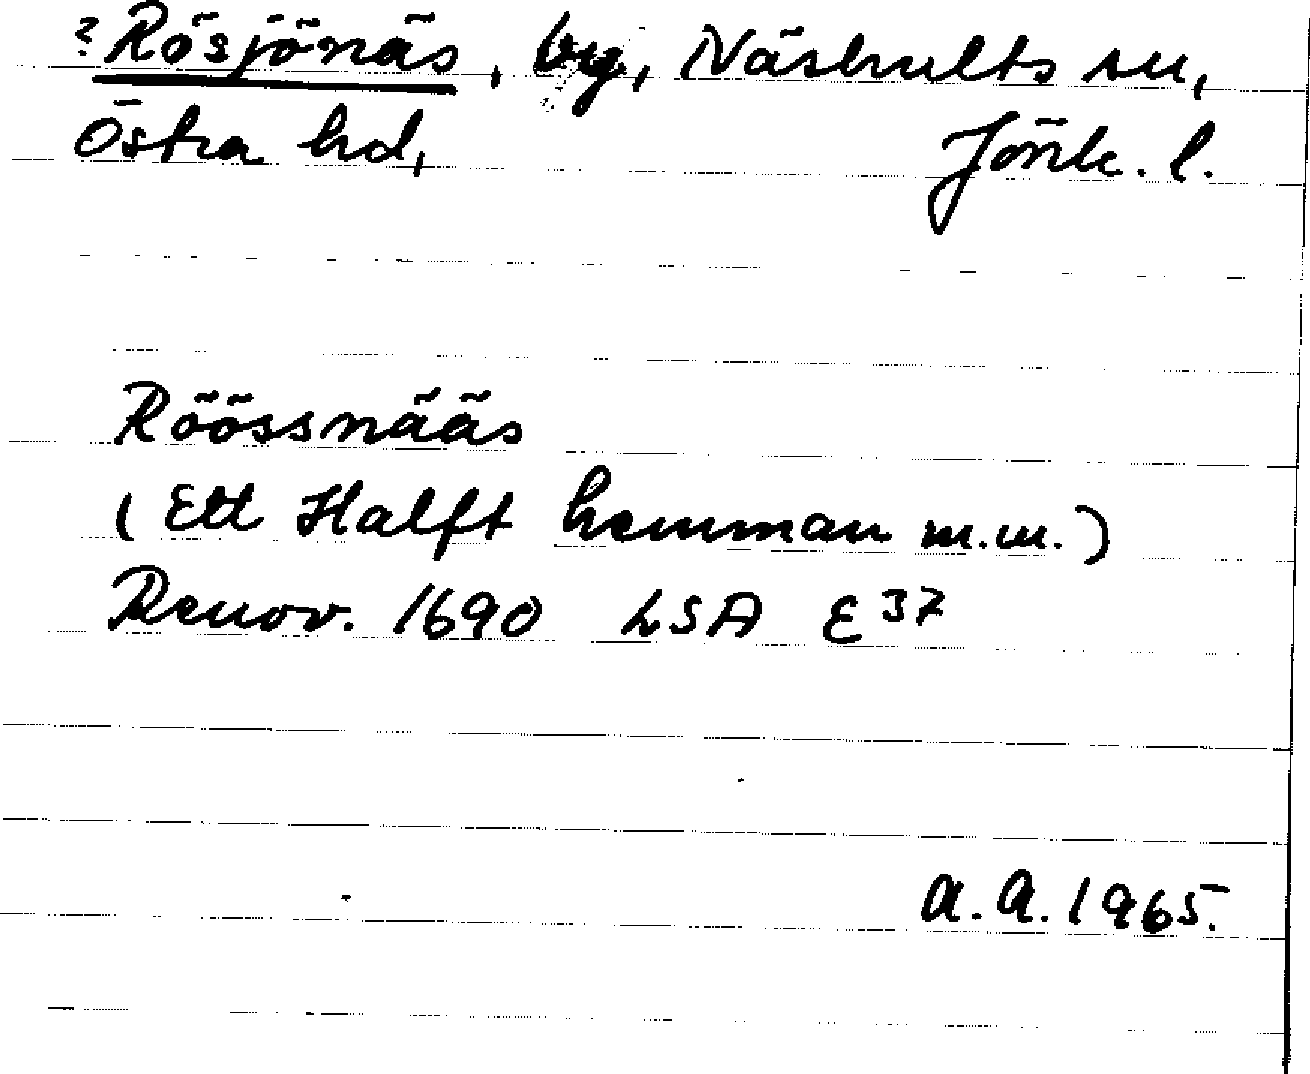 ? Rösjönäs, by, Näshults sn,
Östra hd, Jönk. l.
Röössnääs
(Ett Halft hemman m.m.)
Renov. 1690 LSA E 37
A.A. 1965.